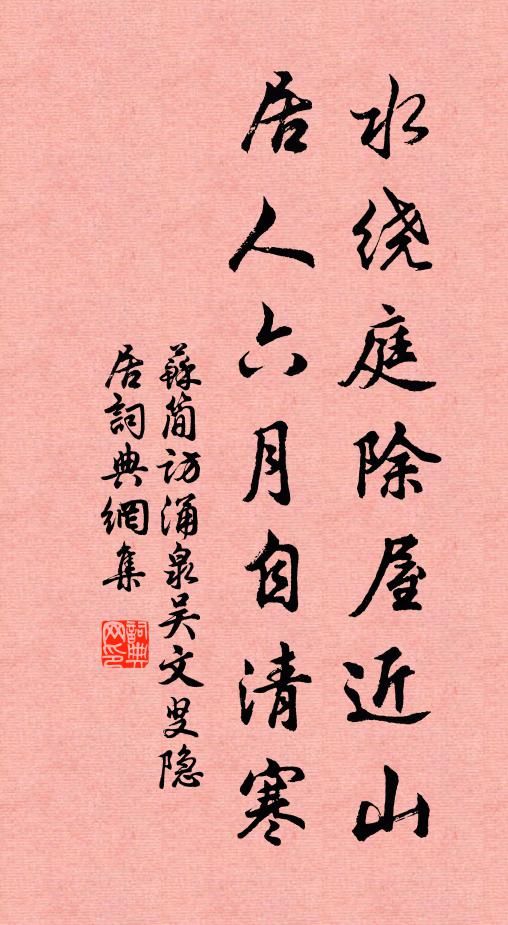 水绕庭除屋近山
居人六月自清寒
蘇简访涌泉吴文叟隐
居詞典網集
詞典网印